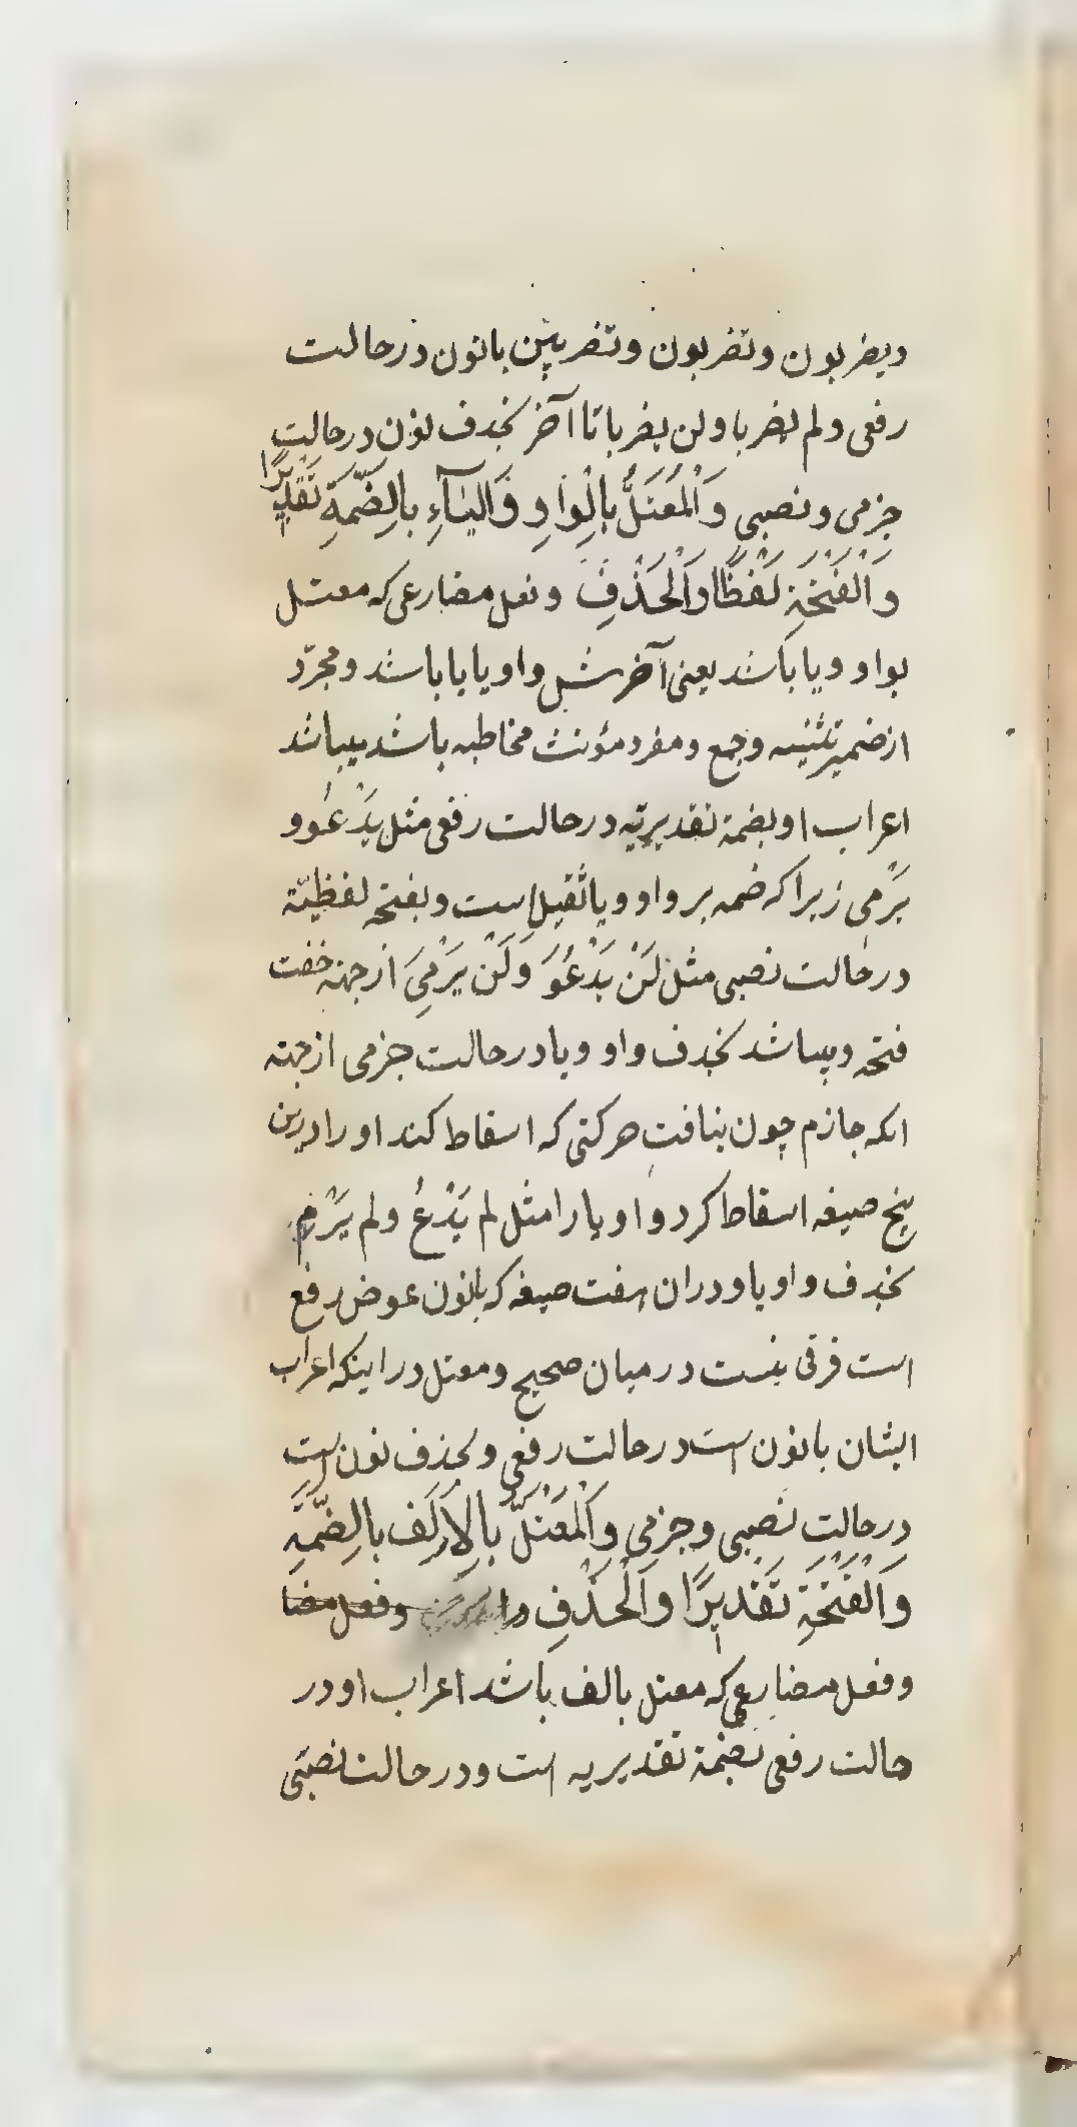 ویضربون وتضربون وتضربین بانون درحالت
رفعی ولم یضربا ولن یضربا تا آخر بحذف نون درحالت
جزمی ونصبی وَالْمُعْتَلُّ بِالْوٰاوِ وَالْیٰآءِ بِالضَّمَّةِ تَقْدِیرًا
وَالْفَتْحَةِ لَفْظًا وَالْحَذْفِ وفعل مضارعی که معتل
بواو ویا باشد یعنی آخرش واو یا یا باشد ومجرّد
از ضمیر تثنیه وجمع ومفرد مؤنث مخاطبه باشد میباشد
اعراب او بضمة تقدیریّه درحالت رفعی مثل یَدْعُو و
یَرْمِی زیرا که ضمه بر واو ویا ثقیل است وبفتحه لفظیّة
درحالت نصبی مثل لَنْ یَدْعُوَ وَلَنْ یَرْمِیَ ازجهته خفت
فتحه ومیباشد بحذف واو ویا درحالت جزمی ازجهته
انکه جازم چون نیافت حرکتی که اسقاط کند او را درین
پنج صیغه اسقاط کرد واو یا را مثل لم یَدْعُ ولم یَرْمِ
بحذف واو یا ودران هفت صیغه که بانون عوض رفع
است فرقی نیست درمیان صحیح ومعتل دراینکه اعراب
ایشان بانون است درحالت رفعی وبحذف نون است
درحالت نصبی وجزمی وَالْمُعْتَلُّ بِالْاَلِفِ بِالضَّمَّةِ
وَالْفَتْحَةِ تَقْدِیرًا وَالْحَذْفِ وفعل مضا
وفعل مضارعی که معتل بالف باشد اعراب او در
حالت رفعی بضمة تقدیریه است ودرحالت نصبی